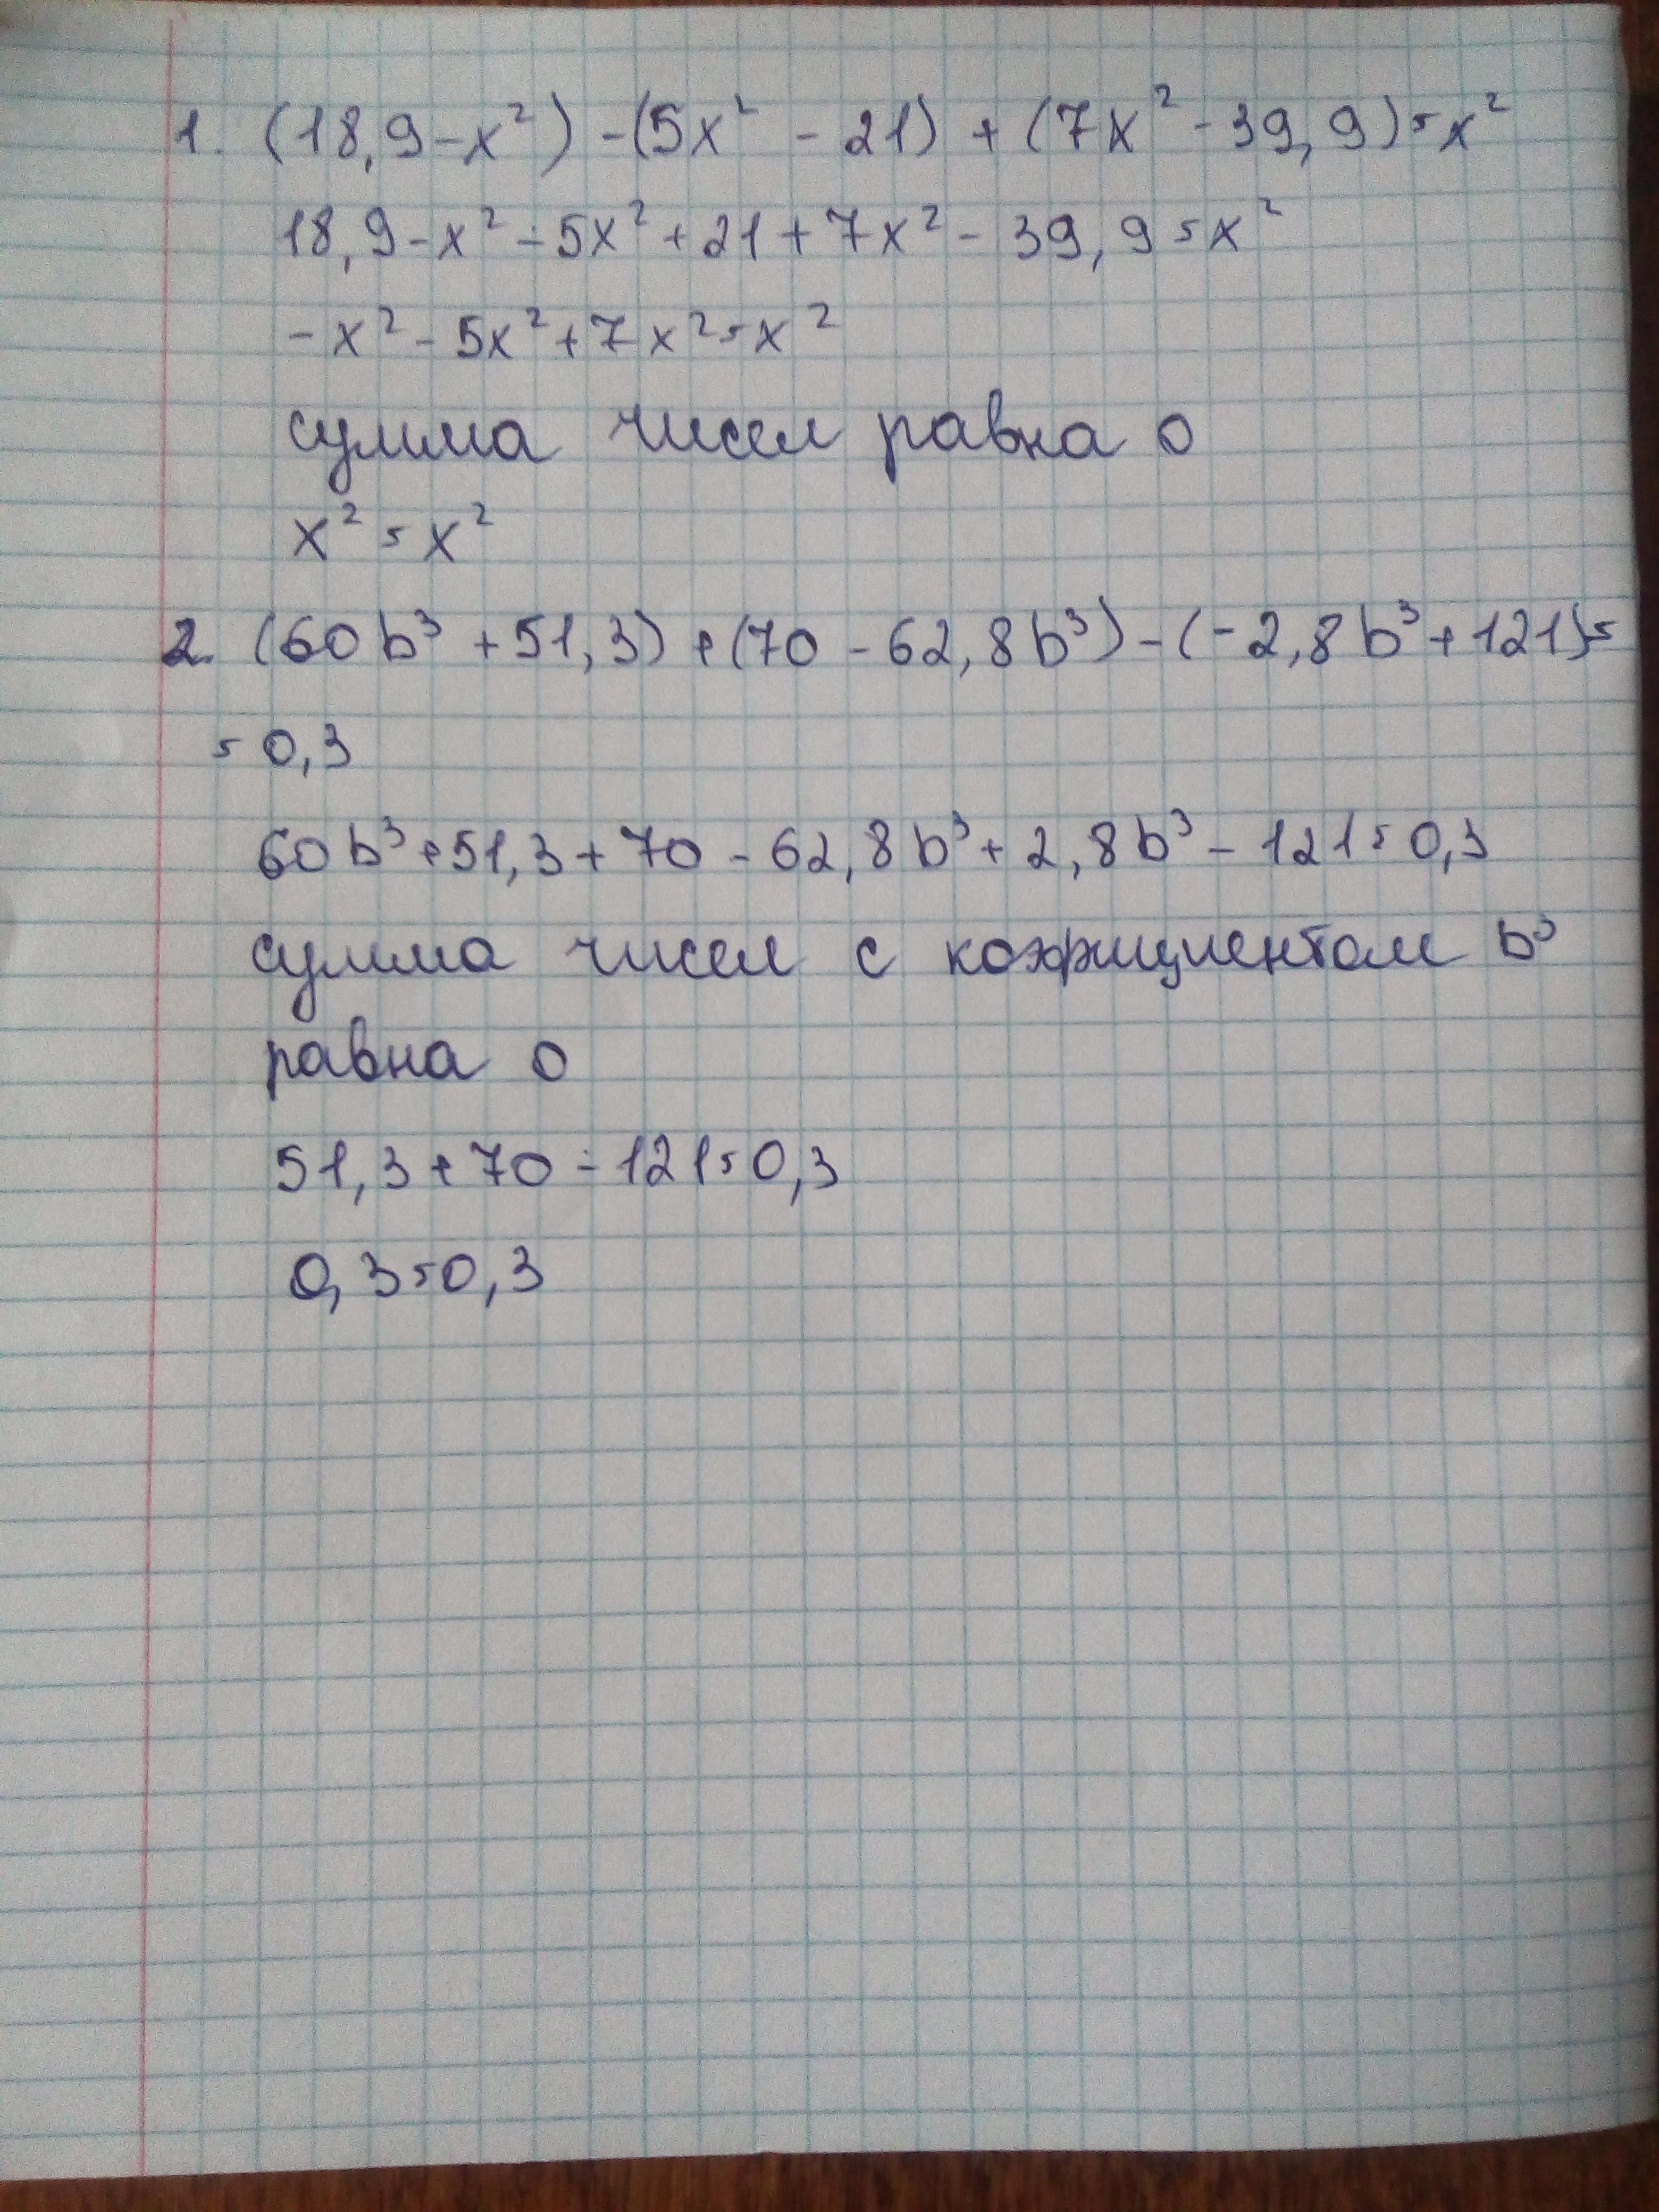 1. (18,9-x²) -(5x² - 21) + (7x² - 39,9)=x²
18,9-x²-5x²+21+7x²-39,9=x²
-x²-5x²+7x²=x²
сумма чисел равна 0
x²=x²
2. (60b³+51,3)+(70-62,8b³)-(-2,8b³+121)=
=0,3
60b³+51,3+70-62,8b³+2,8b³-121=0,3
сумма чисел с коэфициентом b³
равна 0
51,3+70-121=0,3
0,3=0,3